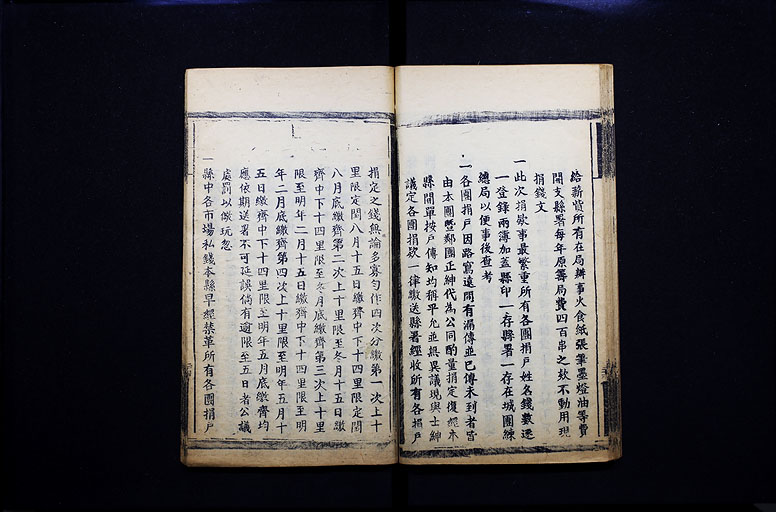 給薪貲所有在局辦事火食紙張筆墨燈油等費
開支縣署每年原籌局費四百串之欵不動用現
捐錢文
一此次捐欵事最繁重所有各團捐户姓名錢數逐
一登錄兩簿加蓋縣印一存縣署一存在城團練
總局以便事後查考
一各團捐户因路窵遠間有漏傳並已傳未到者皆
由本團暨鄰團正紳代為公同酌量捐定復經本
縣開單按户傳知均稱平允並無異議現與士紳
議定各團捐欵一律繳送縣署經收所有各捐户
捐定之錢無論多寡勻作四次分繳第一次上十
里限定閏八月十五日繳齊中下十四里限定閏
八月底繳齊第二次上十里限至冬月十五日繳
齊中下十四里限至冬月底繳齊第三次上十里
限至明年二月十五日繳齊中下十四里限至明
年二月底繳齊第四次上十里限至明年五月十
五日繳齊中下十四里限至明年五月底繳齊均
應依期送署不可延誤倘有逾限至五日者公議
處罰以儆玩忽
一縣中各市場私錢本縣早經禁革所有各團捐户